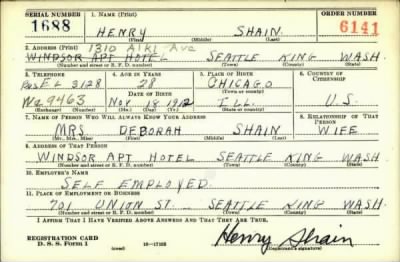 SERIAL NUMBER 1. NAME (Print) ORDER NUMBER
1688 HENRY SHAIN 6141
(First) (Middle) (Last)
2. ADDRESS (Print) 1310 Alki Ave
WINDSOR APT HOTEL SEATTLE KING WASH.
(Number and street or R. F. D. number) (Town) (County) (State)
3. TELEPHONE 4. AGE IN YEARS 5. PLACE OF BIRTH 6. COUNTRY OF CITIZENSHIP
EL 3128 28 CHICAGO
DATE OF BIRTH (Town or county)
9463 NOV 18 1912 ILL. U.S.
(Exchange) (Number) (Mo.) (Day) (Yr.) (State or country)
7. NAME OF PERSON WHO WILL ALWAYS KNOW YOUR ADDRESS 8. RELATIONSHIP OF THAT PERSON
MRS DEBORAH SHAIN WIFE
(Mr., Mrs., Miss) (First) (Middle) (Last)
9. ADDRESS OF THAT PERSON
WINDSOR APT HOTEL SEATTLE KING WASH.
(Number and street or R. F. D. number) (Town) (County) (State)
10. EMPLOYER'S NAME
SELF EMPLOYED
11. PLACE OF EMPLOYMENT OR BUSINESS
701 UNION ST. SEATTLE KING WASH.
(Number and street or R. F. D. number) (Town) (County) (State)
I AFFIRM THAT I HAVE VERIFIED ABOVE ANSWERS AND THAT THEY ARE TRUE.
REGISTRATION CARD
D. S. S. Form 1 (over) Henry Shain
(Registrant's signature)